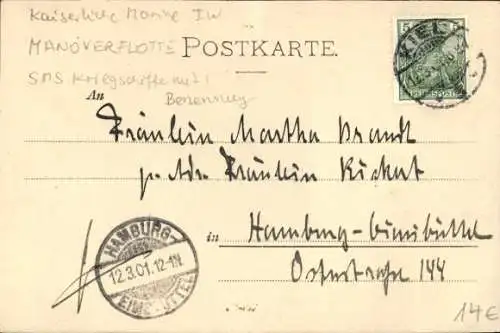 Kaiserliche Marine IW
MANÖVERFLOTTE
POSTKARTE.
SMS Kriegsschiffe mit
Benennung
An
KIEL
5
REICHSPOST
Fräulein Martha Brandt
p. Adr. Fräulein Rickert
in Hamburg-Eimsbüttel
Osterstraße 144
HAMBURG-
12.3.01.12-1N.
EIMSBÜTTEL
14€